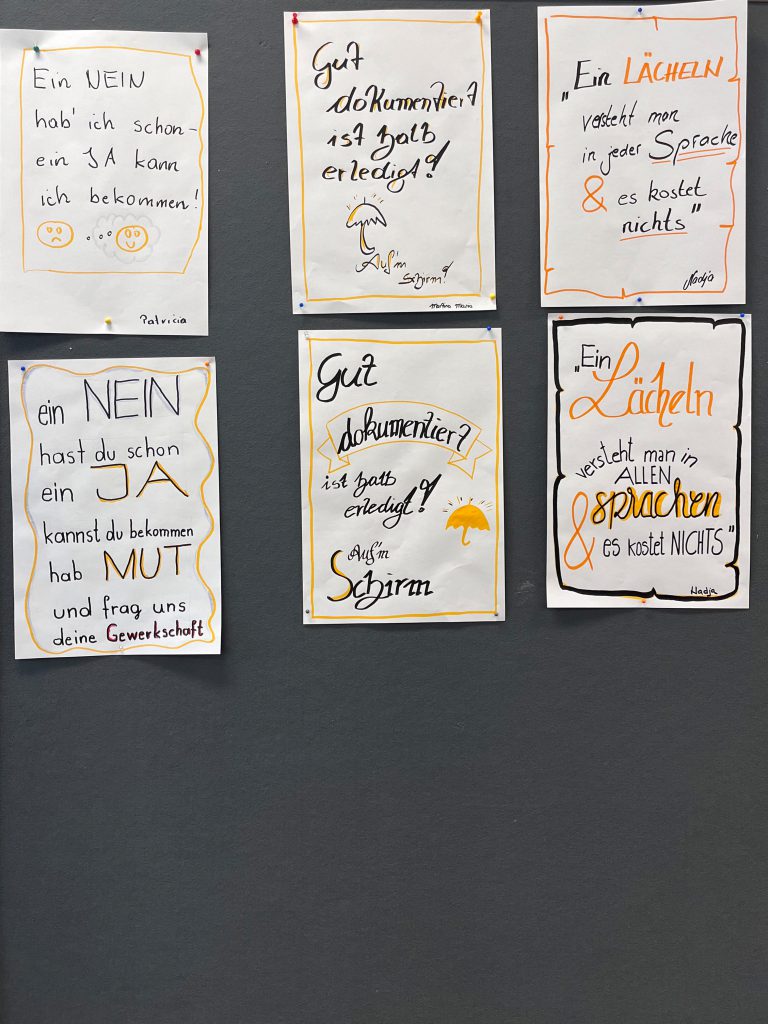 Ein NEIN
hab' ich schon -
ein JA kann
ich bekommen!
Patricia
Gut
dokumentiert
ist halb
erledigt!
Auf'm
Schirm!
Martina Maria
„Ein LÄCHELN
versteht man
in jeder Sprache
& es kostet
nichts"
Nadja
ein NEIN
hast du schon
ein JA
kannst du bekommen
hab MUT
und frag uns
deine Gewerkschaft
Gut
dokumentiert
ist halb
erledigt!
Auf'm
Schirm
„Ein
Lächeln
versteht man in
ALLEN
sprachen
& es kostet NICHTS"
Nadja